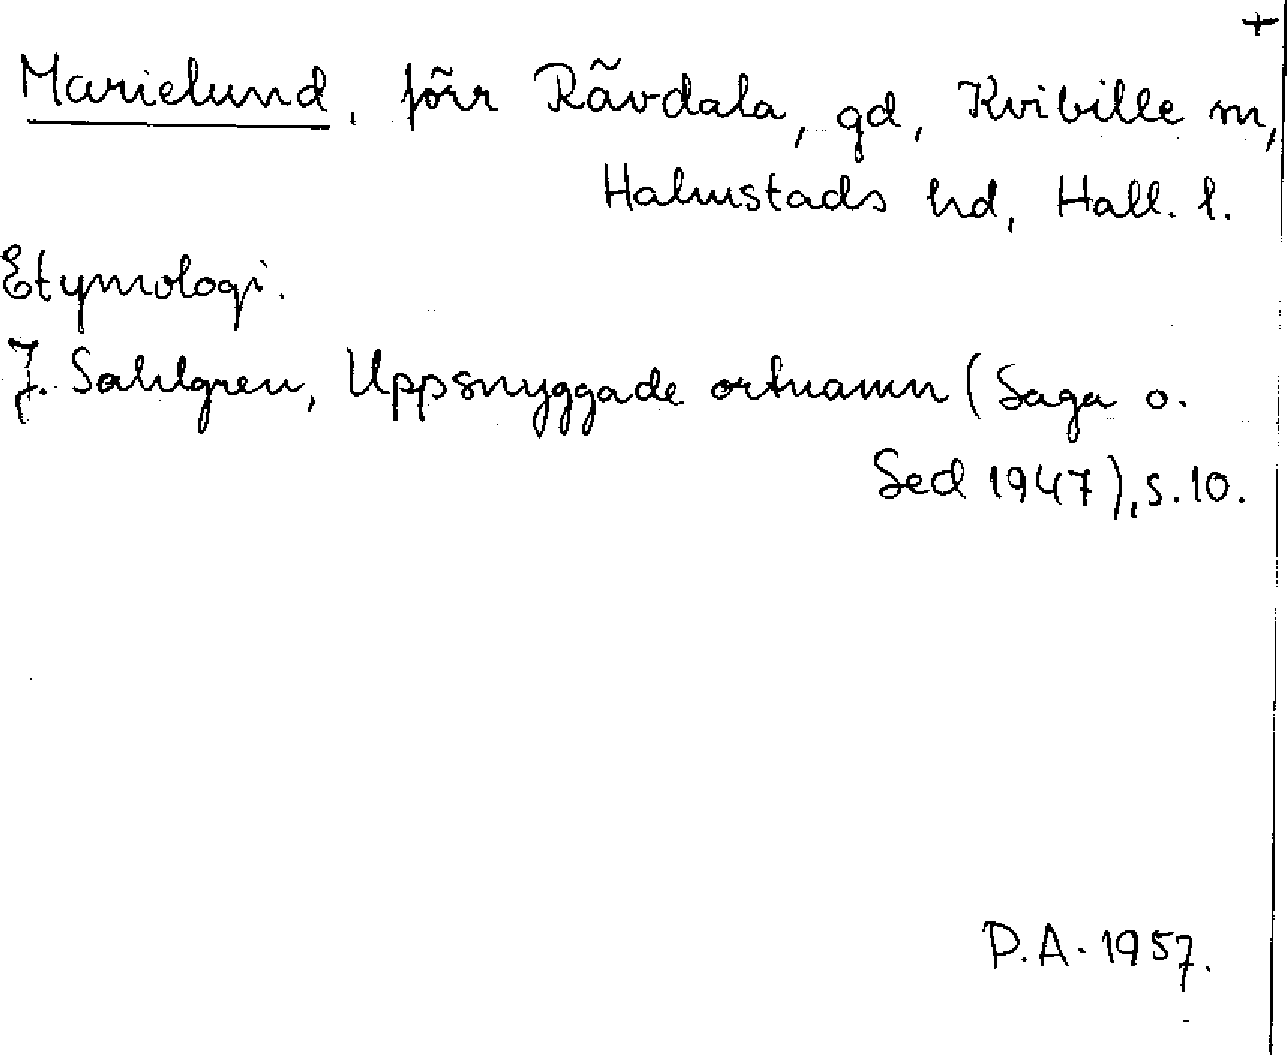 +
Marielund, förr Rävdala, gd, Kvibille sn,
Halmstads hd, Hall. l.
Etymologi.
J. Sahlgren, Uppsnyggade ortnamn (Saga o.
Sed 1947), s. 10.
P.A. 1957.